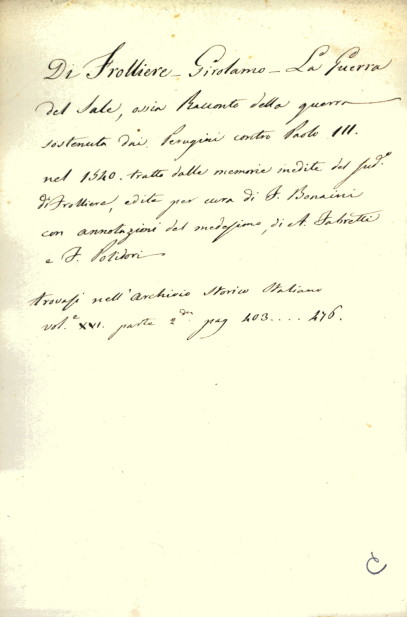 Di Frolliere - Girolamo - La Guerra
del Sale, ossia Racconto della guerra
sostenuta dai Perugini contro Paolo III.
nel 1540. tratto dalle memorie inedite del sud.º
di Frolliere, edite per cura di F. Bonaini
con annotazioni del medesimo, di A. Fabretti
e F. Polidori
trovasi nell'Archivio Storico Italiano
vol.e XVI. parte 2da pag 403.... 476.
C